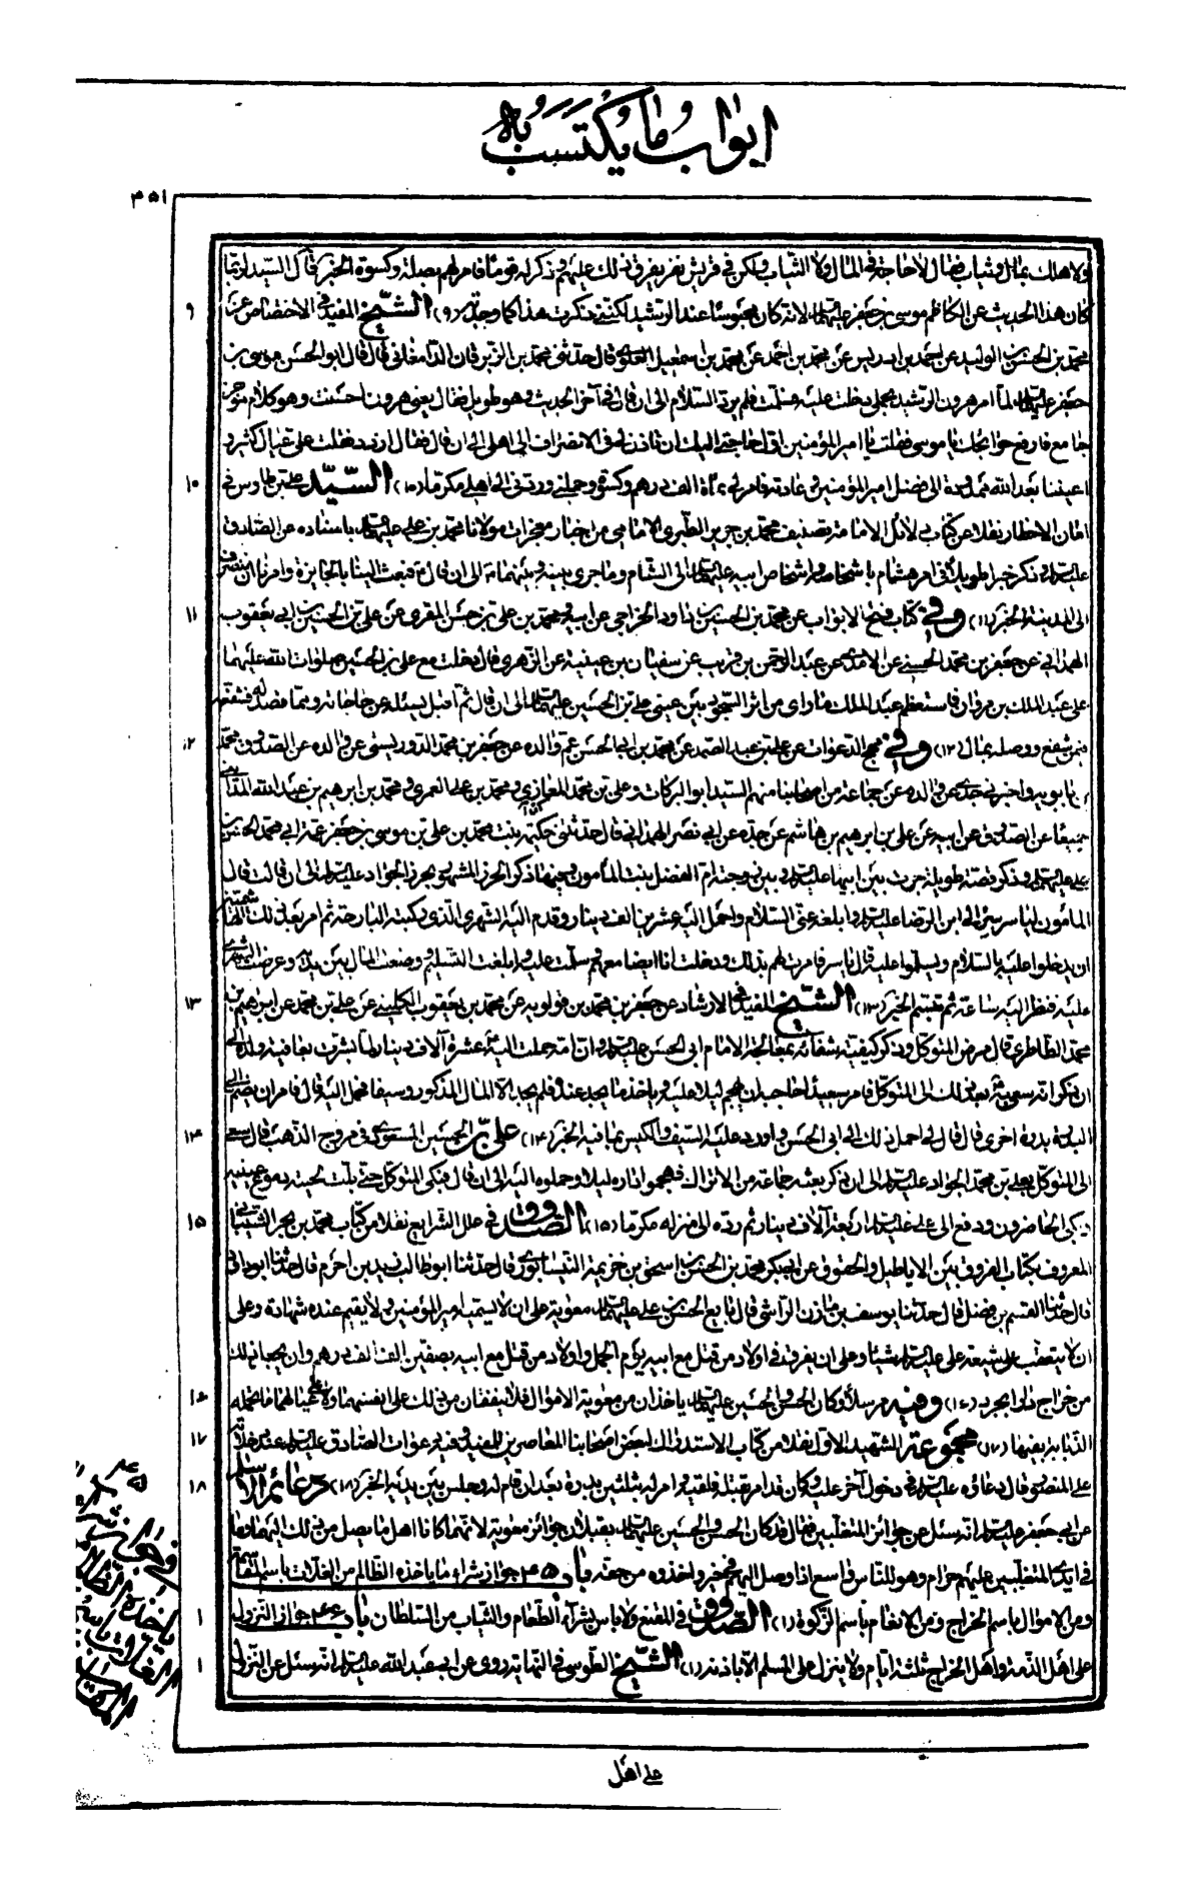 ابواب ما يكتسب به
٤٥١
ولاهلك بمال وثياب فقال لا حاجة في المال ولا الثياب ولكن في قريش نفر يفرق ذلك عليهم وذكر له قوما فامر لهم بصلة وكسوة الخبر قال السيد لربما
كان هذا الحديث عن الكاظم موسى بن جعفر عليهما لانه كان محبوسا عند الرشيد لكنني ذكرت هذا كما وجدته (٩) الشيخ المفيد في الاختصاص عن
٩
محمد بن الحسن بن الوليد عن احمد بن ادريس عن محمد بن احمد عن محمد بن اسمعيل العلوي قال حدثني محمد بن الزبرقان الدامغاني قال قال ابو الحسن موسى بن
جعفر عليهما لما امر هرون الرشيد بحملي دخلت عليه فسلمت فلم يرد السلام الى ان قال في آخر الحديث وهو طويل فقال يعني هرون احسنت وهو كلام موجز
جامع فارفع حوائجك يا موسى فقلت يا امير المؤمنين اول حاجتي اليك ان تاذن لي في الانصراف الى اهلي الى ان قال فقال ازدد فقلت علي عيال كثير و
اعيننا بعد الله ممدودة الى فضل امير المؤمنين وعادته فامر لي بمأة الف درهم وكسوة وحملني وردني الى اهلي مكرما (١٠) السيد علي بن طاوس في
١٠
امان الاخطار نقلا عن كتاب دلائل الامامة تصنيف محمد بن جرير الطبري الامامي من اخبار معجزات مولانا محمد بن علي عليهما باسناده عن الصادق
عليه وذكر خبرا طويلا في امر هشام باشخاصه واشخاص ابيه عليهما الى الشام وما جرى بينه وبينهما الى ان قال فبعث الينا بالجايزة وامرنا ان ننصرف
الى المدينة الخبر (١١) وفي كتاب فتح الابواب عن محمد بن الحسين بن داود الخراجي عن ابيه ومحمد بن علي بن حسن المقري عن علي بن الحسين بن ابي يعقوب
١١
الهمداني عن جعفر بن محمد الحسني عن الامدي عن عبد الرحمن بن قريب عن سفيان بن عيينة عن الزهري قال دخلت مع علي بن الحسين صلوات الله عليهما
على عبد الملك بن مروان فاستعظم عبد الملك ما راى من اثر السجود بين عيني علي بن الحسين عليهما الى ان قال ثم اقبل يسئله عن حاجاته ومما قصد له فشفعه
فيمن شفع ووصله بمال (١٢) وفي مهج الدعوات عن علي بن عبد الصمد عن محمد بن ابي الحسن عم والده عن جعفر بن محمد الدوريستي عن والده عن الصدوق محمد
١٢
بن بابويه واخبرني جدي عن والده عن جماعة من اصحابنا منهم السيد ابو البركات وعلي بن محمد المعاذي ومحمد بن علي العمري ومحمد بن ابرهيم بن عبد الله المدائني
جميعا عن الصدوق عن ابيه عن علي بن ابرهيم بن هاشم عن جده عن ابي نصر الهمداني قال حدثتني حكيمة بنت محمد بن علي بن موسى بن جعفر عمة ابي محمد الحسن بن
علي عليهما وذكر قصة طويلة جرت بين ابيها عليه وبين زوجته ام الفضل بنت المامون وفيها ذكر الحرز المشهور بحرز الجواد عليه الى ان قالت قال
المامون لياسر سر الى ابن الرضا عليه وابلغه عني السلام واحمل اليه عشرين الف دينار وقدم اليه الشهري الذي ركبته البارحة ثم امر بعد ذلك الهاشميين
ان يدخلوا عليه بالسلام ويسلموا عليه قال ياسر فامرت لهم بذلك ودخلت انا ايضا معهم وسلمت عليه وابلغت التسليم ووضعت المال بين يديه وعرضت الشهري
عليه فنظر اليه ساعة ثم تبسم الخبر (١٣) الشيخ المفيد في الارشاد عن جعفر بن محمد بن قولويه عن محمد بن يعقوب الكليني عن علي بن محمد عن ابراهيم بن
١٣
محمد الطاهري قال مرض المتوكل وذكر كيفية شفائه بمعالجة الامام ابي الحسن عليه وان امه حملت اليه عشرة آلاف دينار لما بشرت بعافية ولدها الى
ان ذكر انه سعي به بعد ذلك الى المتوكل فامر سعيدا الحاجب ان يهجم ليلا عليه وياخذ ما يجد عنده فلم يجد الا المال المذكور وسيفا فحمل اليه قال فامر ان يضم الى
البدرة بدرة اخرى قال قال لي احمل ذلك الى ابي الحسن واردد عليه السيف والكيس بما فيه الخبر (١٤) علي بن الحسين المسعودي في مروج الذهب قال سعي
١٤
الى المتوكل بعلي بن محمد الجواد عليه الى ان ذكر بعثه جماعة من الاتراك فهجموا داره ليلا وحملوه اليه الى ان قال فبكى المتوكل حتى بلت لحيته دموع عينيه
وبكى الحاضرون ودفع الى علي عليه اربعة آلاف دينار ثم رده الى منزله مكرما (١٥) الصدوق في علل الشرايع نقلا من كتاب محمد بن بحر الشيباني
١٥
المعروف بكتاب الفروق بين الاباطيل والحقوق عن ابي بكر محمد بن الحسن بن اسحق بن خزيمة النيسابوري قال حدثنا ابو طالب زيد بن احزم قال حدثنا ابو داود
قال حدثنا القسم بن فضل قال حدثنا يوسف بن مازن الراشي قال بايع الحسن بن علي عليهما معوية على ان لا يسميه امير المؤمنين ولا يقيم عنده شهادة وعلى
ان لا يتعقب على شيعة علي عليه شيئا وعلى ان يفرق في اولاد من قتل مع ابيه يوم الجمل واولاد من قتل مع ابيه بصفين الف الف درهم وان يجعل ذلك
من خراج دارابجرد (١٦) وفيه مرسلا وكان الحسن والحسين عليهما ياخذان من معوية الاموال فلا ينفقان من ذلك على انفسهما ولا على عيالهما ما تحمله
١٦
الذبابة بفيها (١٧) مجموعة الشهيد الاول نقلا من كتاب الاستدراك لبعض اصحابنا المعاصرين للمفيد وفيه دعوات الصادق عليه عند دخوله
١٧
على المنصور قال دعاؤه عليه في دخول آخر عليه وكان قد امر بقتله فلقيه وامر له بثلثين بدرة بعد ان قام له وجلس بين يديه الخبر (١٨) دعائم الاسلام
١٨
عن ابي جعفر عليه انه سئل عن جوائز المتغلبين فقال قد كان الحسن والحسين عليهما يقبلان جوائز معوية لانهما كانا اهل ما يصل من ذلك اليهما وما
في ايدي المتغلبين عليهم حرام وهو للناس واسع اذا وصل اليهم في خير واخذوه من حقه باب ٤٥ جواز شراء ما ياخذه الظالم من الغلات باسم المقاسمة
ومن الاموال باسم الخراج ومن الانعام باسم الزكوة (١) الصدوق في المقنع ولا باس بشراء الطعام والثياب من السلطان باب ٤٦ جواز النزول
١
على اهل الذمة واهل الخراج ثلثة ايام ولا ينزل على المسلم الا باذنه (١) الشيخ الطوسي في النهاية روى عن ابي عبد الله عليه انه سئل عن النزول
١
في جواز شراء ما
ياخذه الظالم من
الغلات باسم
المقاسمة
على اهل